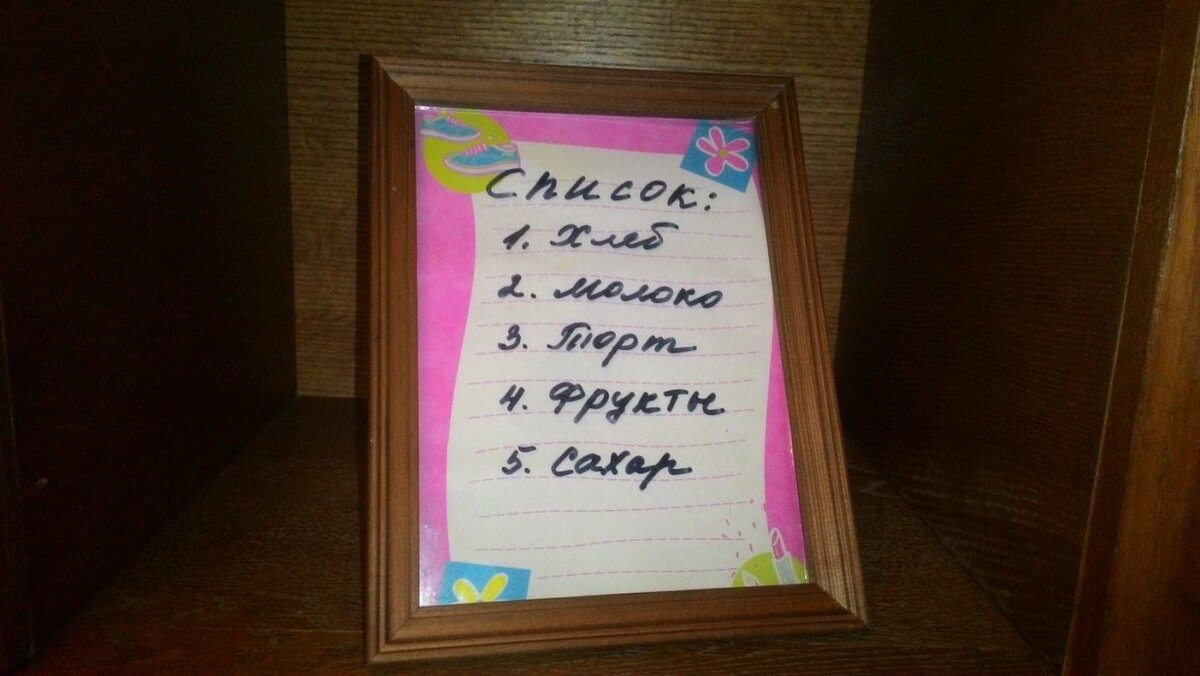 Список:
1. Хлеб
2. Молоко
3. Торт
4. Фрукты
5. Сахар